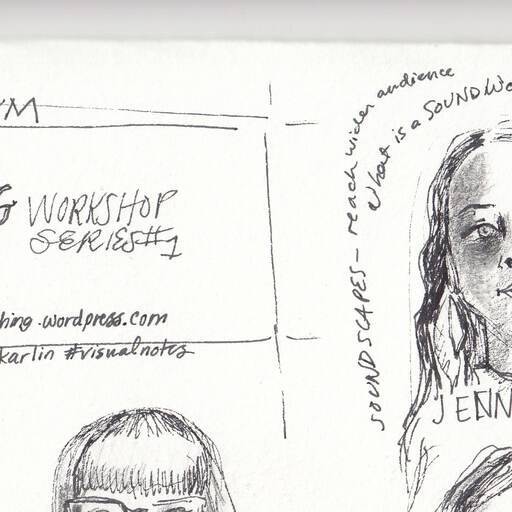 WORKSHOP
SERIES #1
hing.wordpress.com
karlin #visualnotes
SOUNDSCAPES – reach wider audience
what is a SOUND
JENN